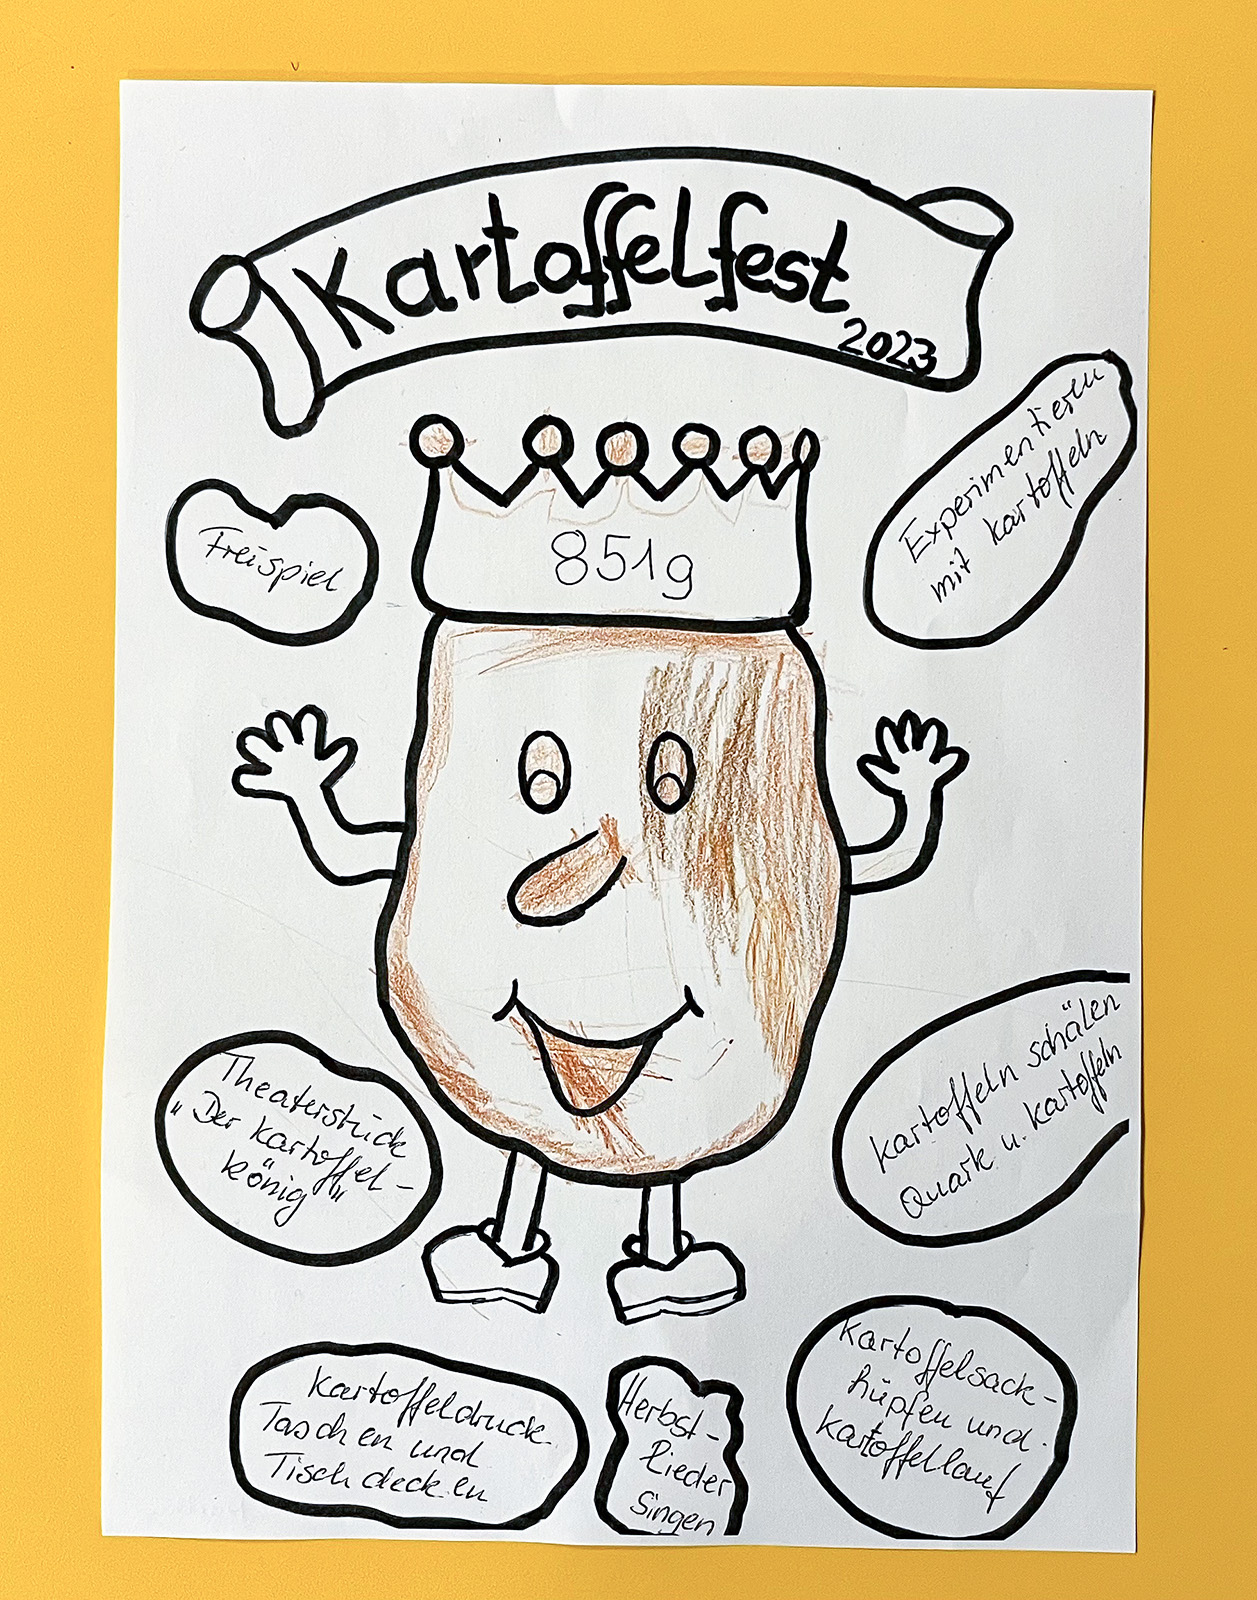 Kartoffelfest
2023
Experimentieren
mit Kartoffeln
Freispiel
851g
Theaterstück
„Der Kartoffel-
könig"
Kartoffeln schälen
Quark u. Kartoffeln
Kartoffeldruck
Taschen und
Tischdecken
Herbst-
lieder
Singen
Kartoffelsack-
hüpfen und
Kartoffellauf